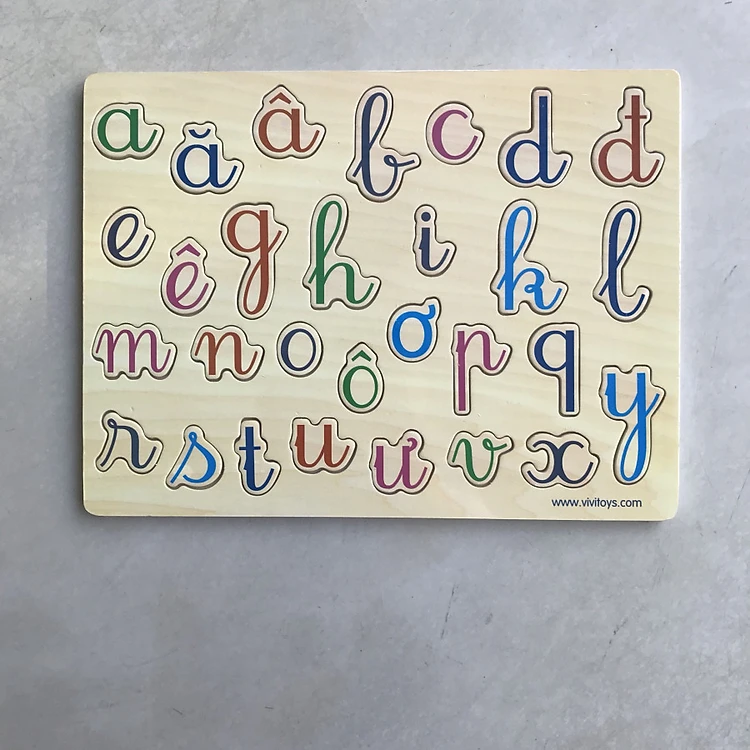 a ă â b c d đ
e ê g h i k l
m n o ô ơ p q
r s t u ư v x y
www.vivitoys.com